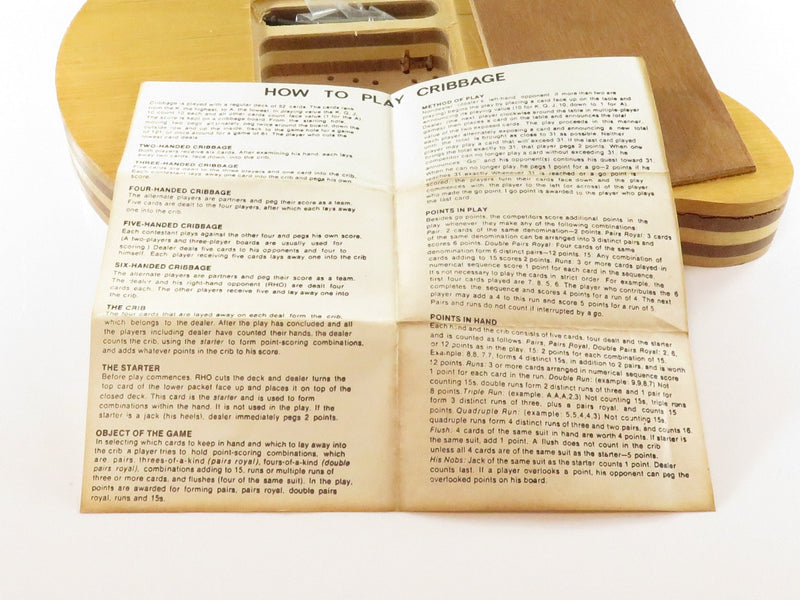 HOW TO PLAY CRIBBAGE
Cribbage is played with a regular deck of 52 cards. The cards rank
from the K, the highest, to A, the lowest. In playing value the K, Q, J,
to count 10 each and all other cards count face value (1 for the A).
TWO-HANDED CRIBBAGE
Both players receive six cards. After examining his hand, each lays
away two cards, face down, into the crib.
THREE-HANDED CRIBBAGE
Five cards are down to the three players and one card into the crib.
Each contestant lays away one card into the crib and pegs his own
score.
FOUR-HANDED CRIBBAGE
The alternate players are partners and peg their score as a team.
Five cards are dealt to the four players, after which each lays away
one into the crib.
FIVE-HANDED CRIBBAGE
Each contestant plays against the other four and pegs his own score.
(A two-players and three-player boards are usually used for
scoring.) Dealer deals five cards to his opponents and four to
himself. Each player receiving five cards lays away one into the crib
SIX-HANDED CRIBBAGE
The alternate players are partners and peg their score as a team.
The dealer and his right-hand opponent (RHO) are dealt four
cards each. The other players receive five and lay away one into
the crib.
THE CRIB
The four cards that are layed away on each deal form the crib,
which belongs to the dealer. After the play has concluded and all
the players including dealer have counted their hands, the dealer
counts the crib, using the starter to form point-scoring combinations,
and adds whatever points in the crib to his score.
THE STARTER
Before play commences, RHO cuts the deck and dealer turns the
top card of the lower packet face up and places it on top of the
closed deck. This card is the starter and is used to form
combinations within the hand. It is not used in the play. If the
starter is a jack (his heels), dealer immediately pegs 2 points.
OBJECT OF THE GAME
In selecting which cards to keep in hand and which to lay away into
the crib a player tries to hold point-scoring combinations, which
are, pairs, threes-of-a-kind (pairs royal), fours-of-a-kind (double
pairs royal), combinations adding to 15, runs or multiple runs of
three or more cards, and flushes (four of the same suit). In the play,
points are awarded for forming pairs, pairs royal, double pairs
royal, runs and 15s.
METHOD OF PLAY
brings the total exactly to 31, that player pegs 2 points. When one
competitor can no longer play a card without exceeding 31, he
announces "Go" and his opponent(s) continues his quest toward 31.
When they can no longer play, he pegs 1 point for a go—2 points if he
reaches 31 exactly. Whenever 31 is reached or a go point is
scored, the players turn their cards face down and the play
commences with the player to the left (or across) of the player
who made the go point. 1 go point is awarded to the player who plays
the last card.
POINTS IN PLAY
Besides go points, the competitors score additional points in the
play, whenever they make any of the following combinations
Pair: 2 cards of the same denomination—2 points. Pairs Royal: 3 cards
of the same denomination can be arranged into 3 distinct pairs and
scores 6 points. Double Pairs Royal: Four cards of the same
denomination form 6 distinct pairs—12 points. 15: Any combination of
cards adding to 15 scores 2 points. Runs: 3 or more cards played in
numerical sequence score 1 point for each card in the sequence.
It's not necessary to play the cards in strict order. For example, the
first four cards played are 7, 8, 5, 6. The player who contributes the 6
completes the sequence and scores 4 points for a run of 4. The next
player may add a 4 to this run and score 5 points for a run of 5.
Pairs and runs do not count if interrupted by a go.
POINTS IN HAND
Each hand and the crib consists of five cards, four dealt and the starter
and is counted as follows: Pairs, Pairs Royal, Double Pairs Royal: 2, 6,
or 12 points as in the play. 15: 2 points for each combination of 15.
Example: 8,8, 7,7, forms 4 distinct 15s, in addition to 2 pairs, and is worth
12 points. Runs: 3 or more cards arranged in numerical sequence score
1 point for each card in the run. Double Run: (example: 9,9,8,7) Not
counting 15s, double runs form 2 distinct runs of three and 1 pair for
8 points. Triple Run: (example: A,A,A,2,3) Not counting 15s, triple runs
form 3 distinct runs of three, plus a pairs royal, and count 15
points. Quadruple Run: (example: 5,5,4,4,3) Not counting 15s,
quadruple runs form 4 distinct runs of three and two pairs, and counts 16.
Flush: 4 cards of the same suit in hand are worth 4 points. If starter is
the same suit, add 1 point. A flush does not count in the crib
unless all 4 cards are of the same suit as the starter—5 points.
His Nobs: Jack of the same suit as the starter counts 1 point. Dealer
counts last. If a player overlooks a point, his opponent can peg the
overlooked points on his board.